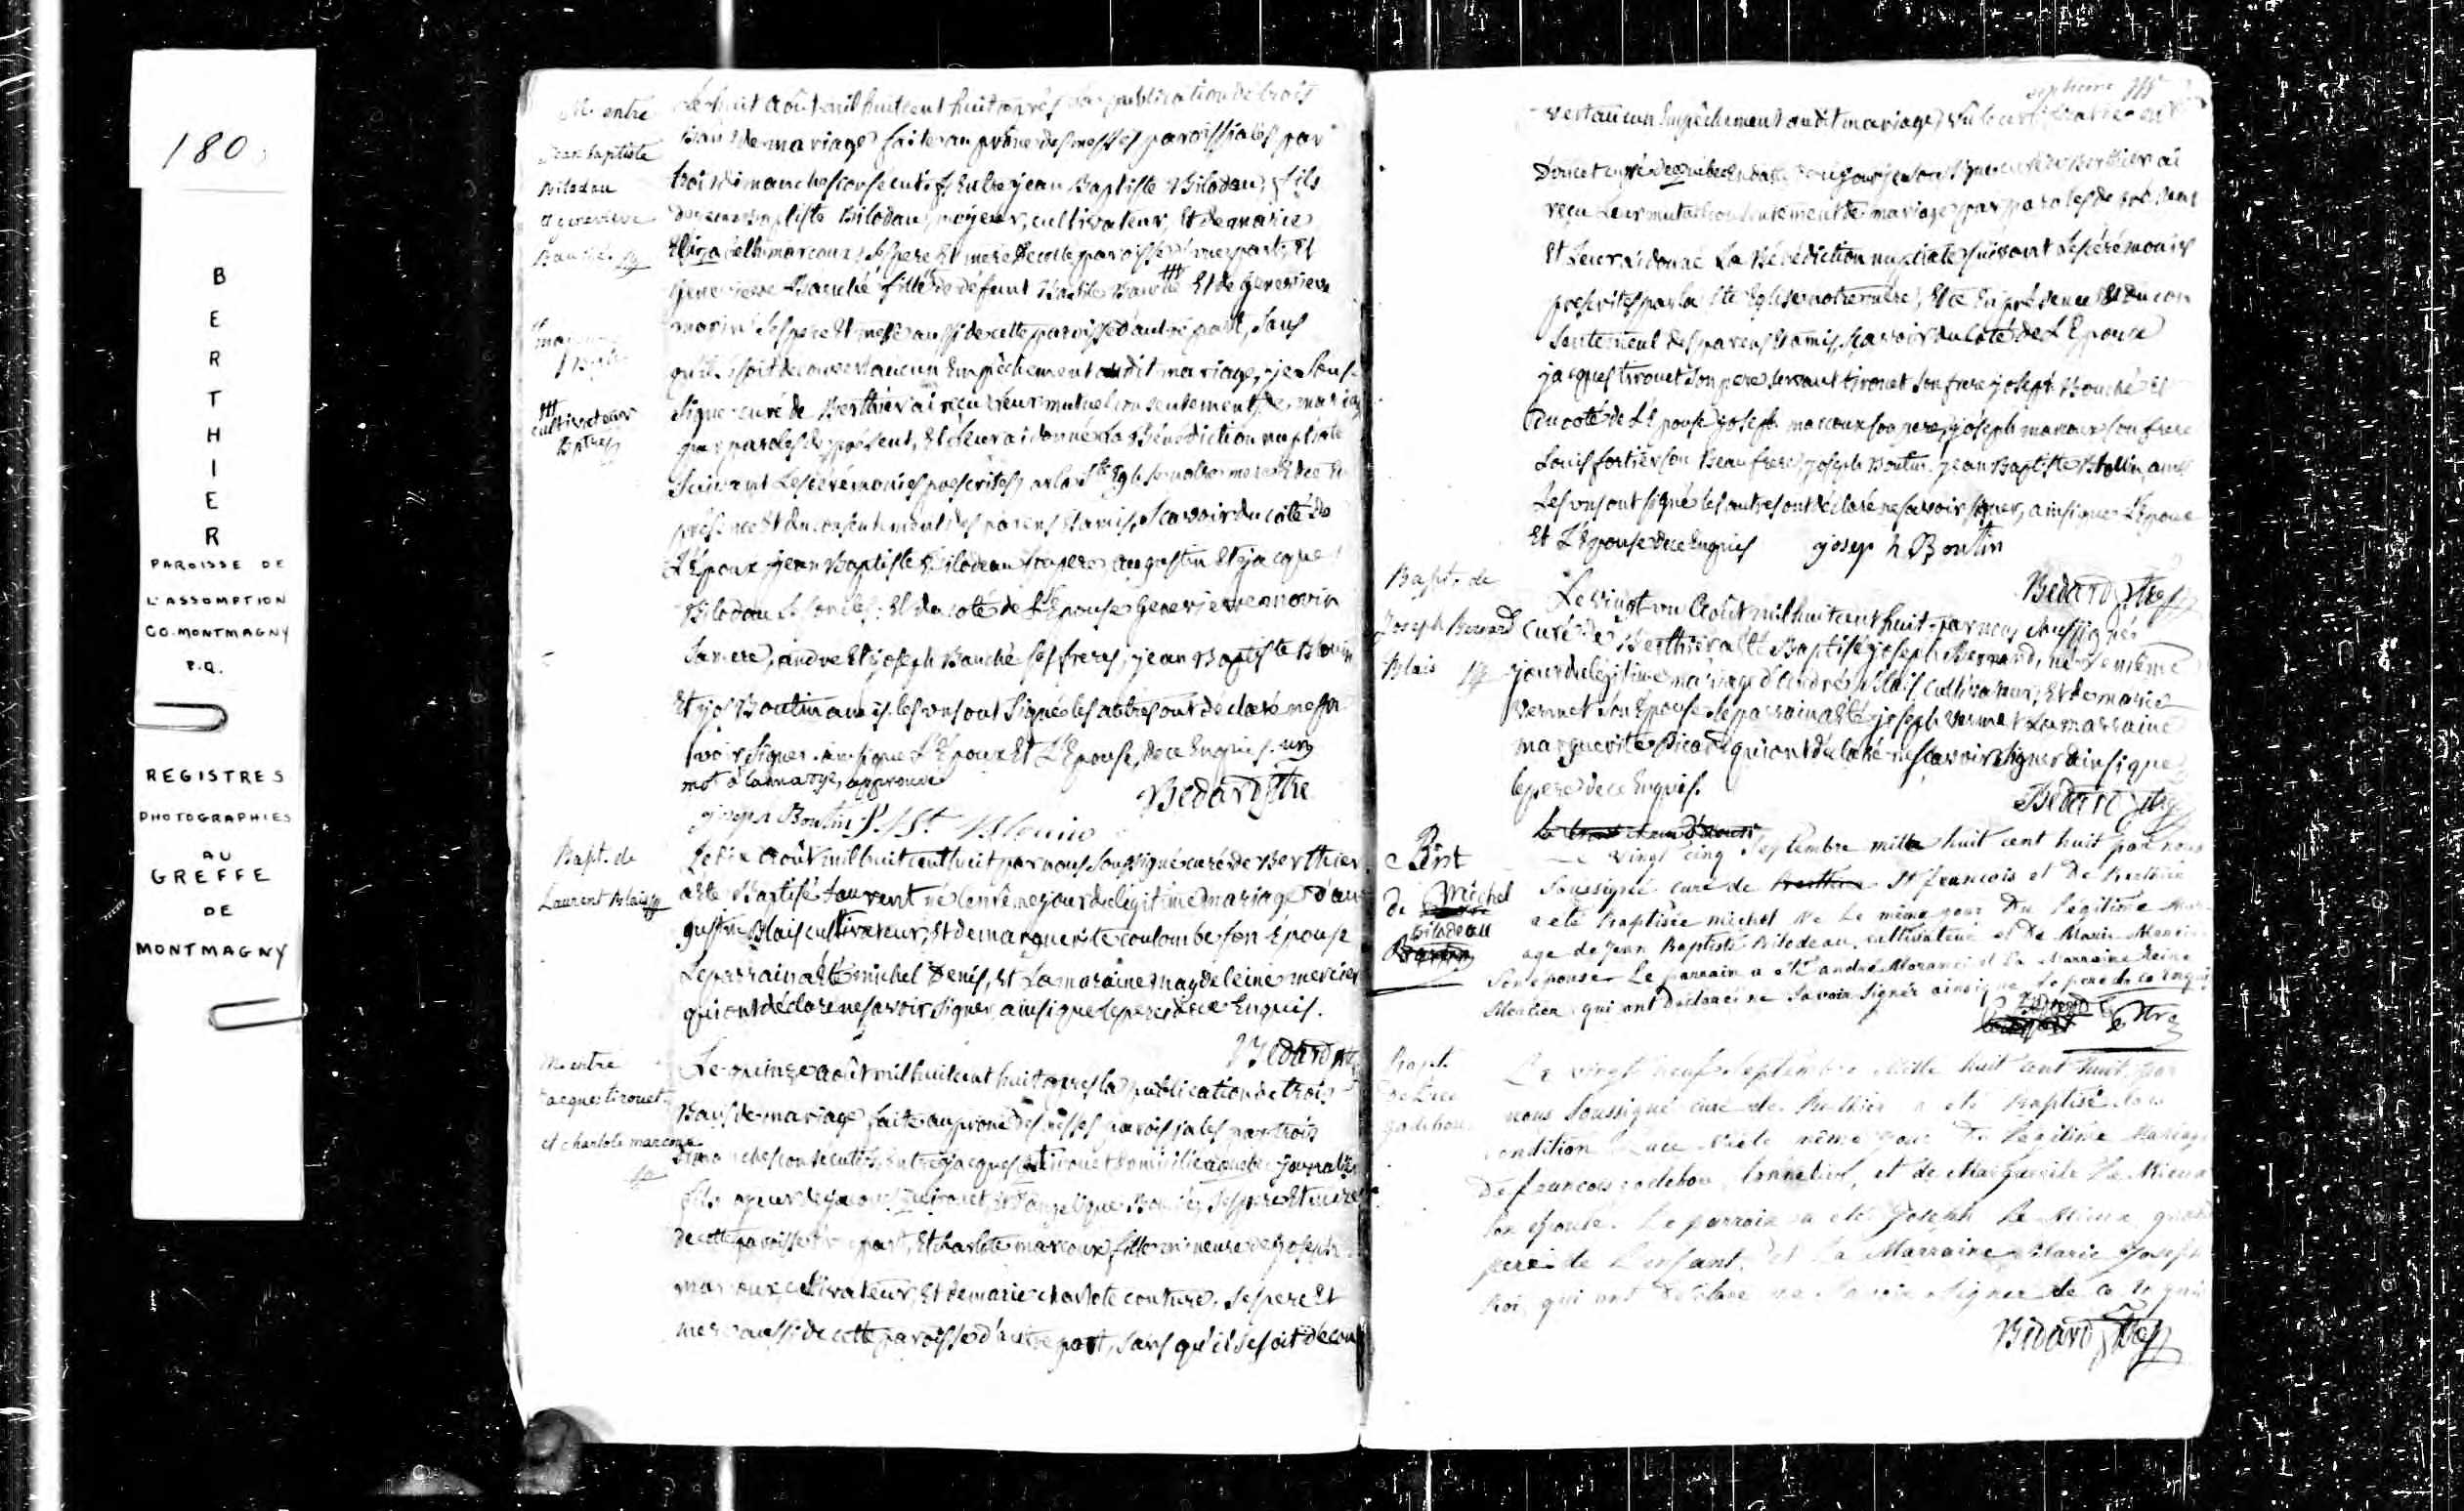 180
BERTHIER
PAROISSE DE
L'ASSOMPTION
CO. MONTMAGNY
P.Q.
REGISTRES
PHOTOGRAPHIES
AU
GREFFE
DE
MONTMAGNY
M. entre
Jean Baptiste
Bilodau
et genevieve
Bauché
cultivateur
Le huit Août mil huit cent huit après la publication de trois
Bans de mariage faite au prône des messes paroissiales par
trois dimanches consecutifs Entre jean Baptiste Bilodau, fils
de jean Baptiste Bilodau, cultivateur, Et de marie
Elizabeth marcoux ses pere Et mere de cette paroisse d'une part, Et
genevieve Bauché fille de défunt Basile Bauché Et de genevieve
morin ses pere Et mere aussi de cette paroisse d'autre part, sans
qu'il se soit decouvert aucun Empêchement audit mariage, je sous-
signé curé de Berthier ai reçu leur mutuel consentement de mariage
par paroles de présent, Et leur ai donné La Bénédiction nuptiale
suivant Les cérémonies prescrites par la Ste Eglise notre mere Et ce En
présence Et du consentement des parens Et amis, Scavoir du côté de
L'Epoux jean Baptiste Bilodeau son pere augustin Et jacque
Bilodau Ses oncles: Et du coté de L'Epouse Genevieve morin
sa mere, andre Et joseph Bauché ses freres, jean Baptiste Blouin
Et jos Boutin amis. les uns ont signé les autres ont déclaré ne sa
voir signer ainsi que L'Epoux Et L'Epouse, de ce Enquis. un
mot à la marge approuvé
Bedard Ptre
joseph Boutin J. Bt Blouin
Bapt. de
Laurent Blais
Le dix Août mil huit cent huit par nous soussigné curé de Berthier
a été Baptisé Laurent né le même jour du légitime mariage d'au
gustin Blais cultivateur, Et de marguerite coulombe son Epouse
Le parrain a été michel Denis, Et La maraine magdeleine mercier
qui ont déclaré ne savoir signer ainsi que le pere de ce Enquis.
Bedard Ptre
M. entre
jacques tirouet
et charlote marcoux
Le quinze août mil huit cent huit apres la publication de trois
Bans de mariage faite au prone des messes paroissiales par trois
dimanches consecutifs, Entre jacques tirouet domicilié à quebec journalier
fils mineur de jacques tirouet, Et d'angelique ses pere Et mere
de cette paroisse d'une part, Et charlote marcoux, fille mineure de joseph
marcoux, cultivateur, Et de marie charlote couture, ses pere Et
mere aussi de cette paroisse d'autre part, sans qu'il se soit décou
septieme
vert aucun Empêchement audit mariage,
curé de quebec je soussigné curé de Berthier ai
reçu Leur mutuel consentement de mariage par paroles de présent
Et Leur ai donné La Bénédiction nuptiale suivant Les cérémonies
prescrites par la Ste Eglise notre mere, Et ce En présence Et du con
sentement des parens Et amis, Scavoir du coté de L'Epoux
jacques tirouet son pere, tirouet son frere joseph Bouché Et
Du coté de L'Epouse joseph marcoux son pere, joseph marcoux son frere
Louis fortier son Beau frere, joseph Boutin, jean Baptiste Blouin, amis
Les uns ont signé les autres ont déclaré ne savoir signer, ainsi que L'Epoux
Et L'Epouse de ce Enquis joseph Boutin
Bedard Ptre
Bapt. de
Joseph Bernard
Blais
Le vingt-un Août mil huit cent huit par nous soussigné
curé de Berthier a été Baptisé joseph Bernard, né le même
jour du légitime mariage d'andré Blais cultivateur, Et de marie
vermet son Epouse Le parrain a été joseph vermet La marraine
marguerite Picard qui ont déclaré ne scavoir signer ainsi que
le pere de ce Enquis.
Bedard Ptre
Bapt
de Michel
Bilodeau
Le vingt cinq Septembre mille huit cent huit par nous
Soussigné curé de St francois et de Berthier
a eté Baptisée michel Né Le même jour Du Legitime Mari
age de Jean Baptiste Bilodeau, cultivateur et de Marie
Son epouse Le parrain a eté andré et la Marraine Reine
qui ont declaré ne Savoir Signer ainsi que le pere de ce enquis
Ptre
Bapt.
de Luce
gadebou
Le vingt neuf Septembre Mille huit cent huit par
nous Soussigné curé de Berthier a eté Baptisé sous
condition Luce Née le même jour Du legitime Mariage
De francois gadebou, et de Marguerite Le Mieux
son epouse. Le parrain a eté Joseph Le Mieux grand
pere de L'enfant, et La Marraine Marie Joseph
Roi qui ont declaré ne Savoir Signer de ce enquis
Bedard Ptre